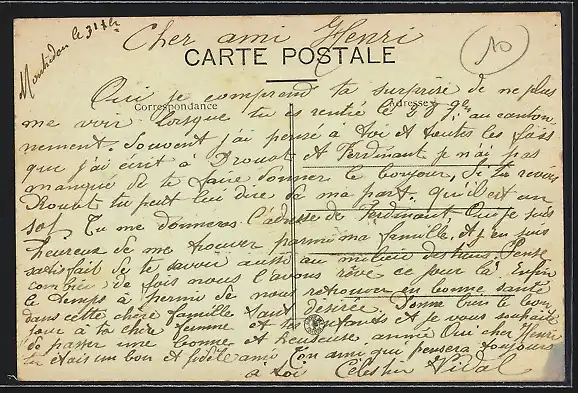 Montredon le 31 Xbre
Cher ami Henri
10
CARTE POSTALE
Correspondance
Adresse
Oui je comprend ta surprise de ne plus
me voir lorsque tu es rentré le 28 9bre au canton
nement. Souvent j'ai pensé à toi et toutes les fois
que j'ai écrit à Drouot et Ferdinant je n'ai pas
manqué de te faire donner le bonjour, Si tu revois
Drouot tu peut lui dire de ma part qu'il est un
sot. Tu me donneras l'adresse de Ferdinant Oui je suis
heureux de me trouver parmi ma famille, et j'en suis
satisfait de te savoir aussi au milieu des tiens. Pense
combien de fois nous l'avons rêvé ce jour là, enfin
le temps à permi de nous retrouver en bonne santé
dans cette chère famille tant désirée. Donne bien le bon
jour à ta chère femme et tes enfants et je vous souhaite
de passer une bonne et heureuse année Oui cher Henri
tu étais un bon et fidèle ami Ton ami qui pensera toujours
à toi Celestin Vidal